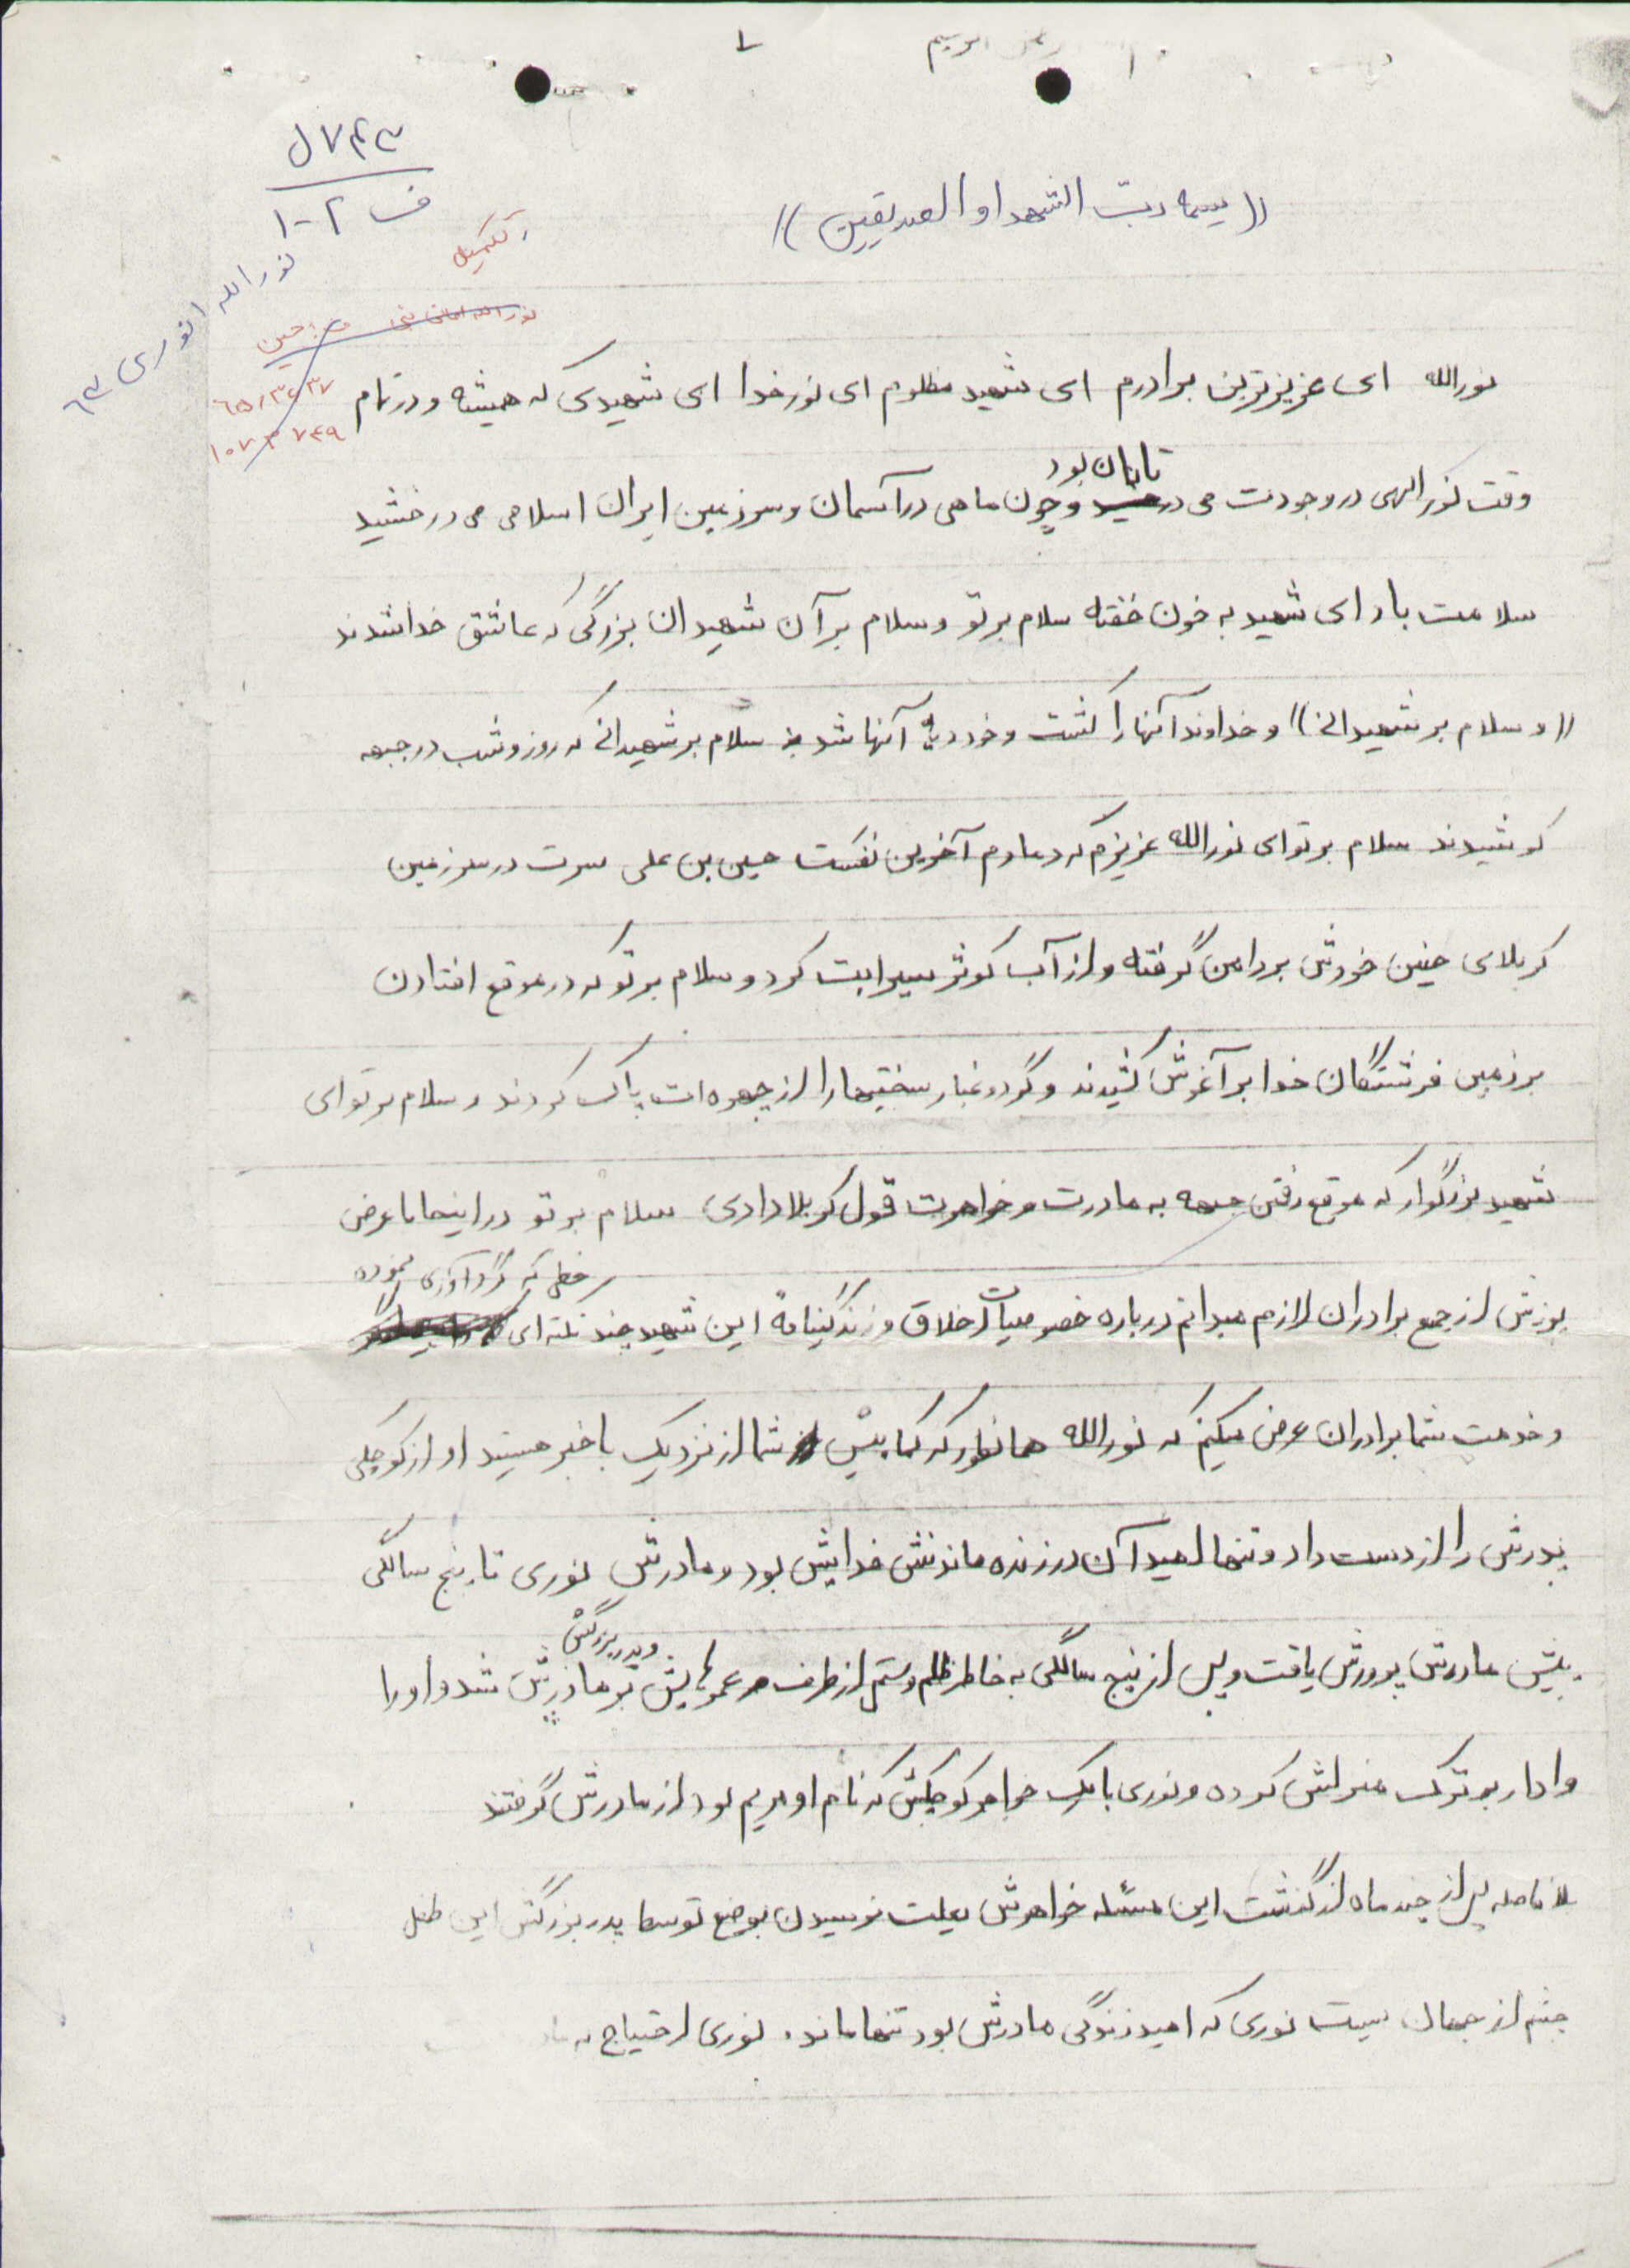 ل ۷۴۳
ف ۲-۱
نورالله انوری ۶۳
تکمیل
((بسمه رب الشهدا و الصدیقین))
نورالله ای عزیزترین برادرم ای شهید مظلوم ای نور خدا ای شهیدی که همیشه و در تمام
تابان بود
وقت نور الهی در وجودت می و چون ماهی در آسمان و سرزمین ایران اسلامی می درخشید
سلامت باد ای شهید به خون خفته سلام بر تو و سلام بر آن شهیدان بزرگی که عاشق خدا شدند
((و سلام بر شهیدانی)) و خداوند آنها را کشت و خود دیه آنها شد سلام بر شهیدانی که روز و شب در جبهه
کوشیدند سلام بر تو ای نورالله عزیزم که در دم آخرین نفست حسین بن علی سرت در سرزمین
کربلای خونین خودش بر دامن گرفته و از آب کوثر سیرابت کرد و سلام بر تو که در موقع افتادن
بر زمین فرشتگان خدا بر آغوش کشیدند و گرد و غبار سختیها را از چهره ات پاک کردند و سلام بر تو ای
شهید بزرگوار که موقع رفتن جبهه به مادرت و خواهرت قول کربلا دادی سلام بر تو در اینجا با عرض
گردآوری نموده
پوزش از جمع برادران لازم میدانم درباره خصوصیات اخلاق و زندگینامهٔ این شهید چند نکته ای
و خدمت شما برادران عرض میکنم که نورالله همانطور که کما بیش شما از نزدیک با خبر هستید او از کوچکی
پدرش را از دست داد و تنها امید آن در زنده ماندنش خدایش بود و مادرش نوری تا پنج سالگی
و پدر بزرگش
پیش مادرش پرورش یافت و پس از پنج سالگی به خاطر ظلم و ستم از طرف عموهایش بر مادرش شد و او را
وادار بر ترک منزلش کرده و نوری با یک خواهر کوچکش که نام او مریم بود از مادرش گرفتند
بلافاصله پس از چند ماه از گذشت این مسئله خواهرش بعلت نرسیدن بوضع توسط پدر بزرگش این طفل
چشم از جهان بست نوری که امید زندگی مادرش بود تنها ماند. نوری احتیاج به